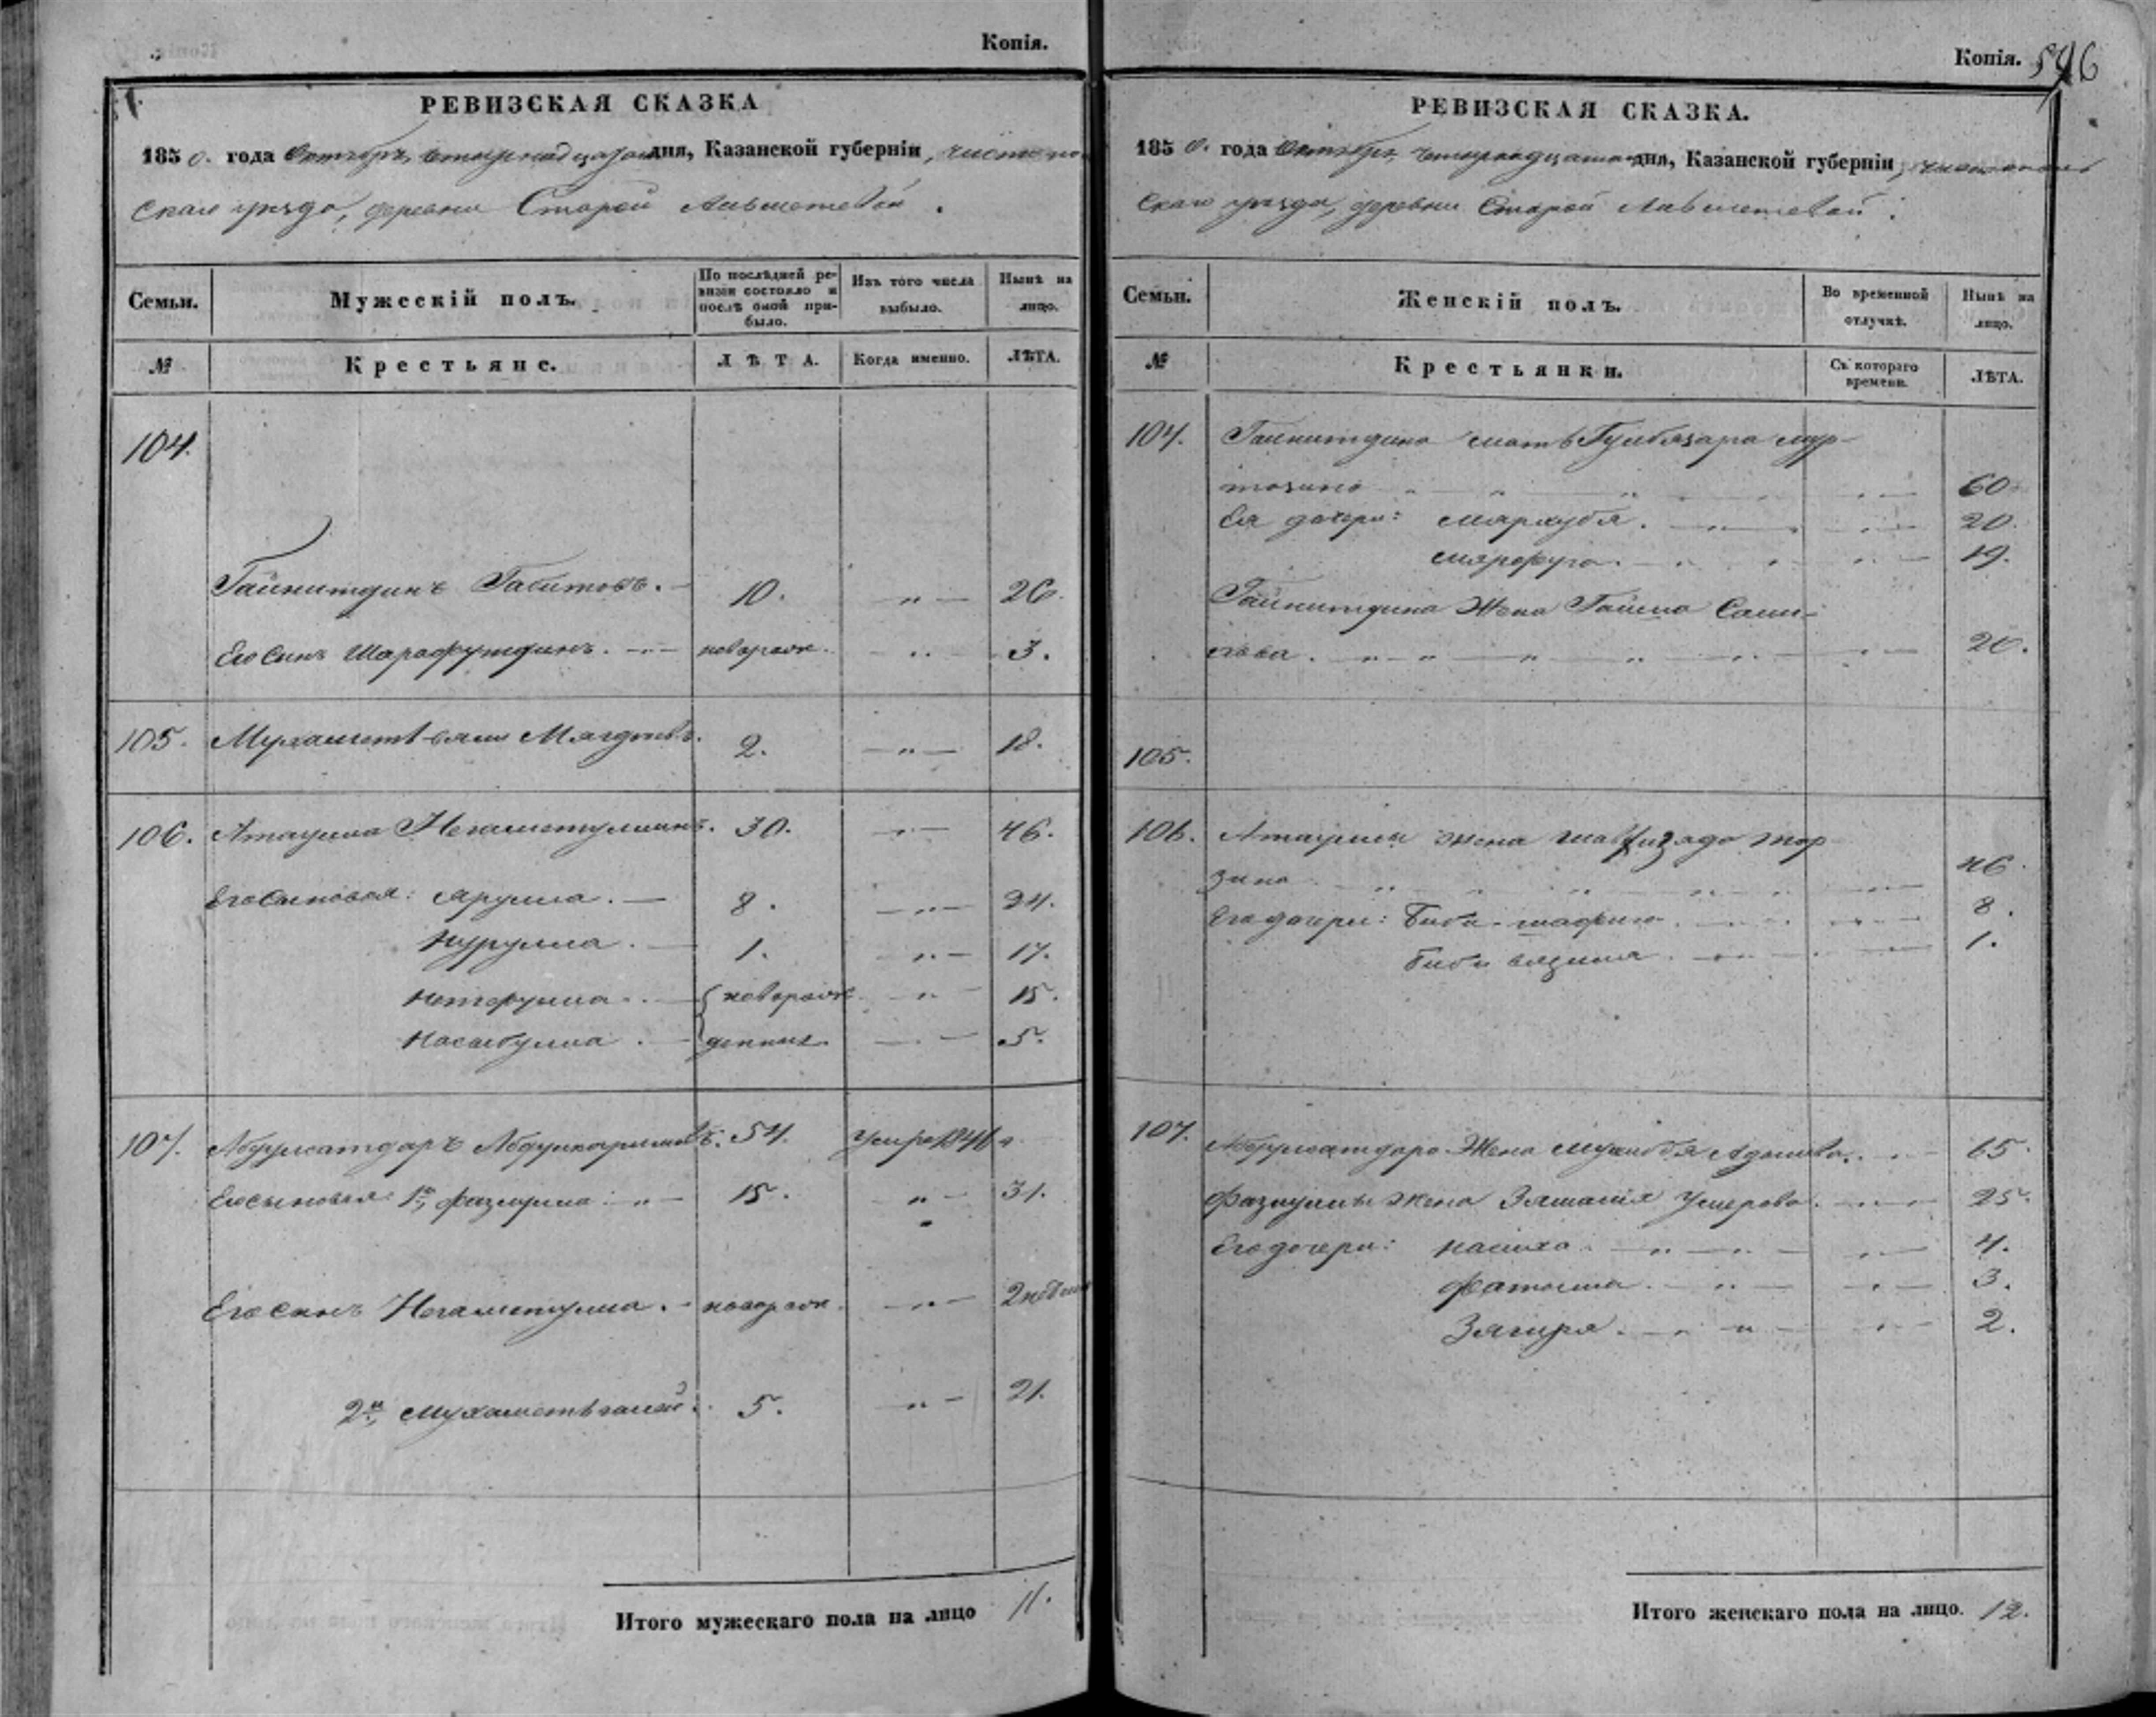 Копія.
РЕВИЗСКАЯ СКАЗКА
1850. года Октября четырнадцатаго дня, Казанской губерніи, Чистополь
скаго уѣзда, деревни Старой
Семьи.
Мужескій полъ.
По послѣдней ре-
визіи состояло и
послѣ оной при-
было.
Изъ того числа
выбыло.
Нынѣ на
лицо.
№
Крестьяне.
ЛѢТА.
Когда именно.
ЛѢТА.
104.
Гайнитдинъ Габитовъ. 10. 26.
Его сынъ Шарафутдинъ. новорож. 3.
105. 2. 18.
106. Атаулла Негаметуллинъ. 30. 46.
Его сыновья: Ярулла. 8. 24.
Нурулла. 1. 17.
новорож 15.
денные. 5.
107. Абдулсатдаръ Абдулкаримовъ. 54. Умре 1841
Его сыновья 1й, Фазлулла 15. 31.
Его сынъ Негаметулла. новорож. 2 недѣли
2й, Мухаметьгалей. 5. 21.
Итого мужескаго пола на лицо 11.
Копія. 546
РЕВИЗСКАЯ СКАЗКА.
1850. года Октября четырнадцатаго дня, Казанской губерніи, Чистополь
скаго уѣзда, деревни Старой
Семьи.
Женскій полъ.
Во временной
отлучкѣ.
Нынѣ на
лицо.
№
Крестьянки.
Съ котораго
времени.
ЛѢТА.
104. Гайнитдина мать Гульбязара Мур-
тазина 60.
Ея дочери: Мархубя. 20.
19.
Гайнитдина жена Гайша Сали-
хова. 20.
105.
106. Атауллы жена
зина 46.
Его дочери: Биби-шафига. 8.
Биби 1.
107. Абдулсатдара жена 65.
Фазлуллы жена Умерова. 25.
Его дочери: 4.
Фатыма. 3.
Зягиря. 2.
Итого женскаго пола на лицо. 12.